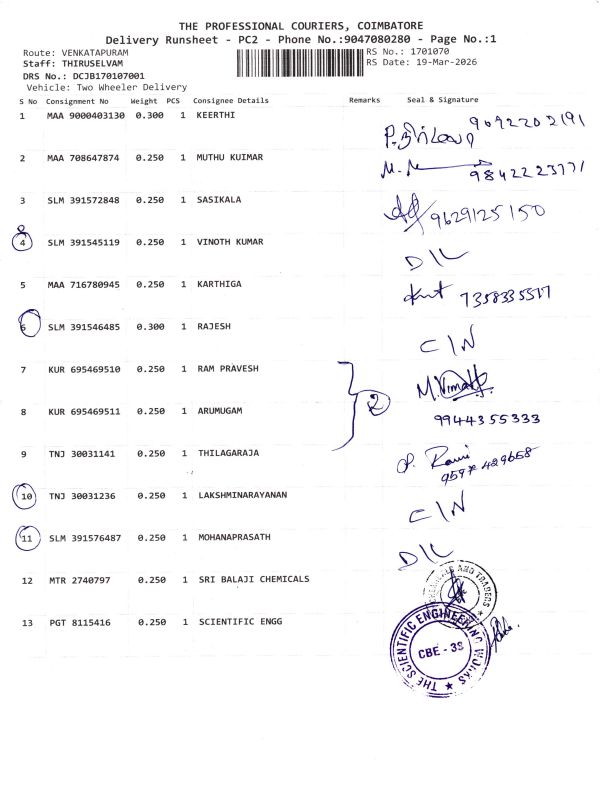 THE PROFESSIONAL COURIERS, COIMBATORE
Delivery Runsheet - PC2 - Phone No.:9047080280 - Page No.:1
Route: VENKATAPURAM RS No.: 1701070
Staff: THIRUSELVAM RS Date: 19-Mar-2026
DRS No.: DCJB170107001
Vehicle: Two Wheeler Delivery
S No Consignment No Weight PCS Consignee Details Remarks Seal & Signature
1 MAA 9000403130 0.300 1 KEERTHI 9692202191
2 MAA 708647874 0.250 1 MUTHU KUIMAR 9842223771
3 SLM 391572848 0.250 1 SASIKALA 9629125150
4 SLM 391545119 0.250 1 VINOTH KUMAR D/L
5 MAA 716780945 0.250 1 KARTHIGA 7358335517
6 SLM 391546485 0.300 1 RAJESH C/N
7 KUR 695469510 0.250 1 RAM PRAVESH 2 M.Vimal
8 KUR 695469511 0.250 1 ARUMUGAM 9944355333
9 TNJ 30031141 0.250 1 THILAGARAJA P. Rami
10 TNJ 30031236 0.250 1 LAKSHMINARAYANAN C/N
11 SLM 391576487 0.250 1 MOHANAPRASATH D/L
12 MTR 2740797 0.250 1 SRI BALAJI CHEMICALS AND TRADERS
13 PGT 8115416 0.250 1 SCIENTIFIC ENGG
THE SCIENTIFIC ENGINEERING WORKS
CBE - 39